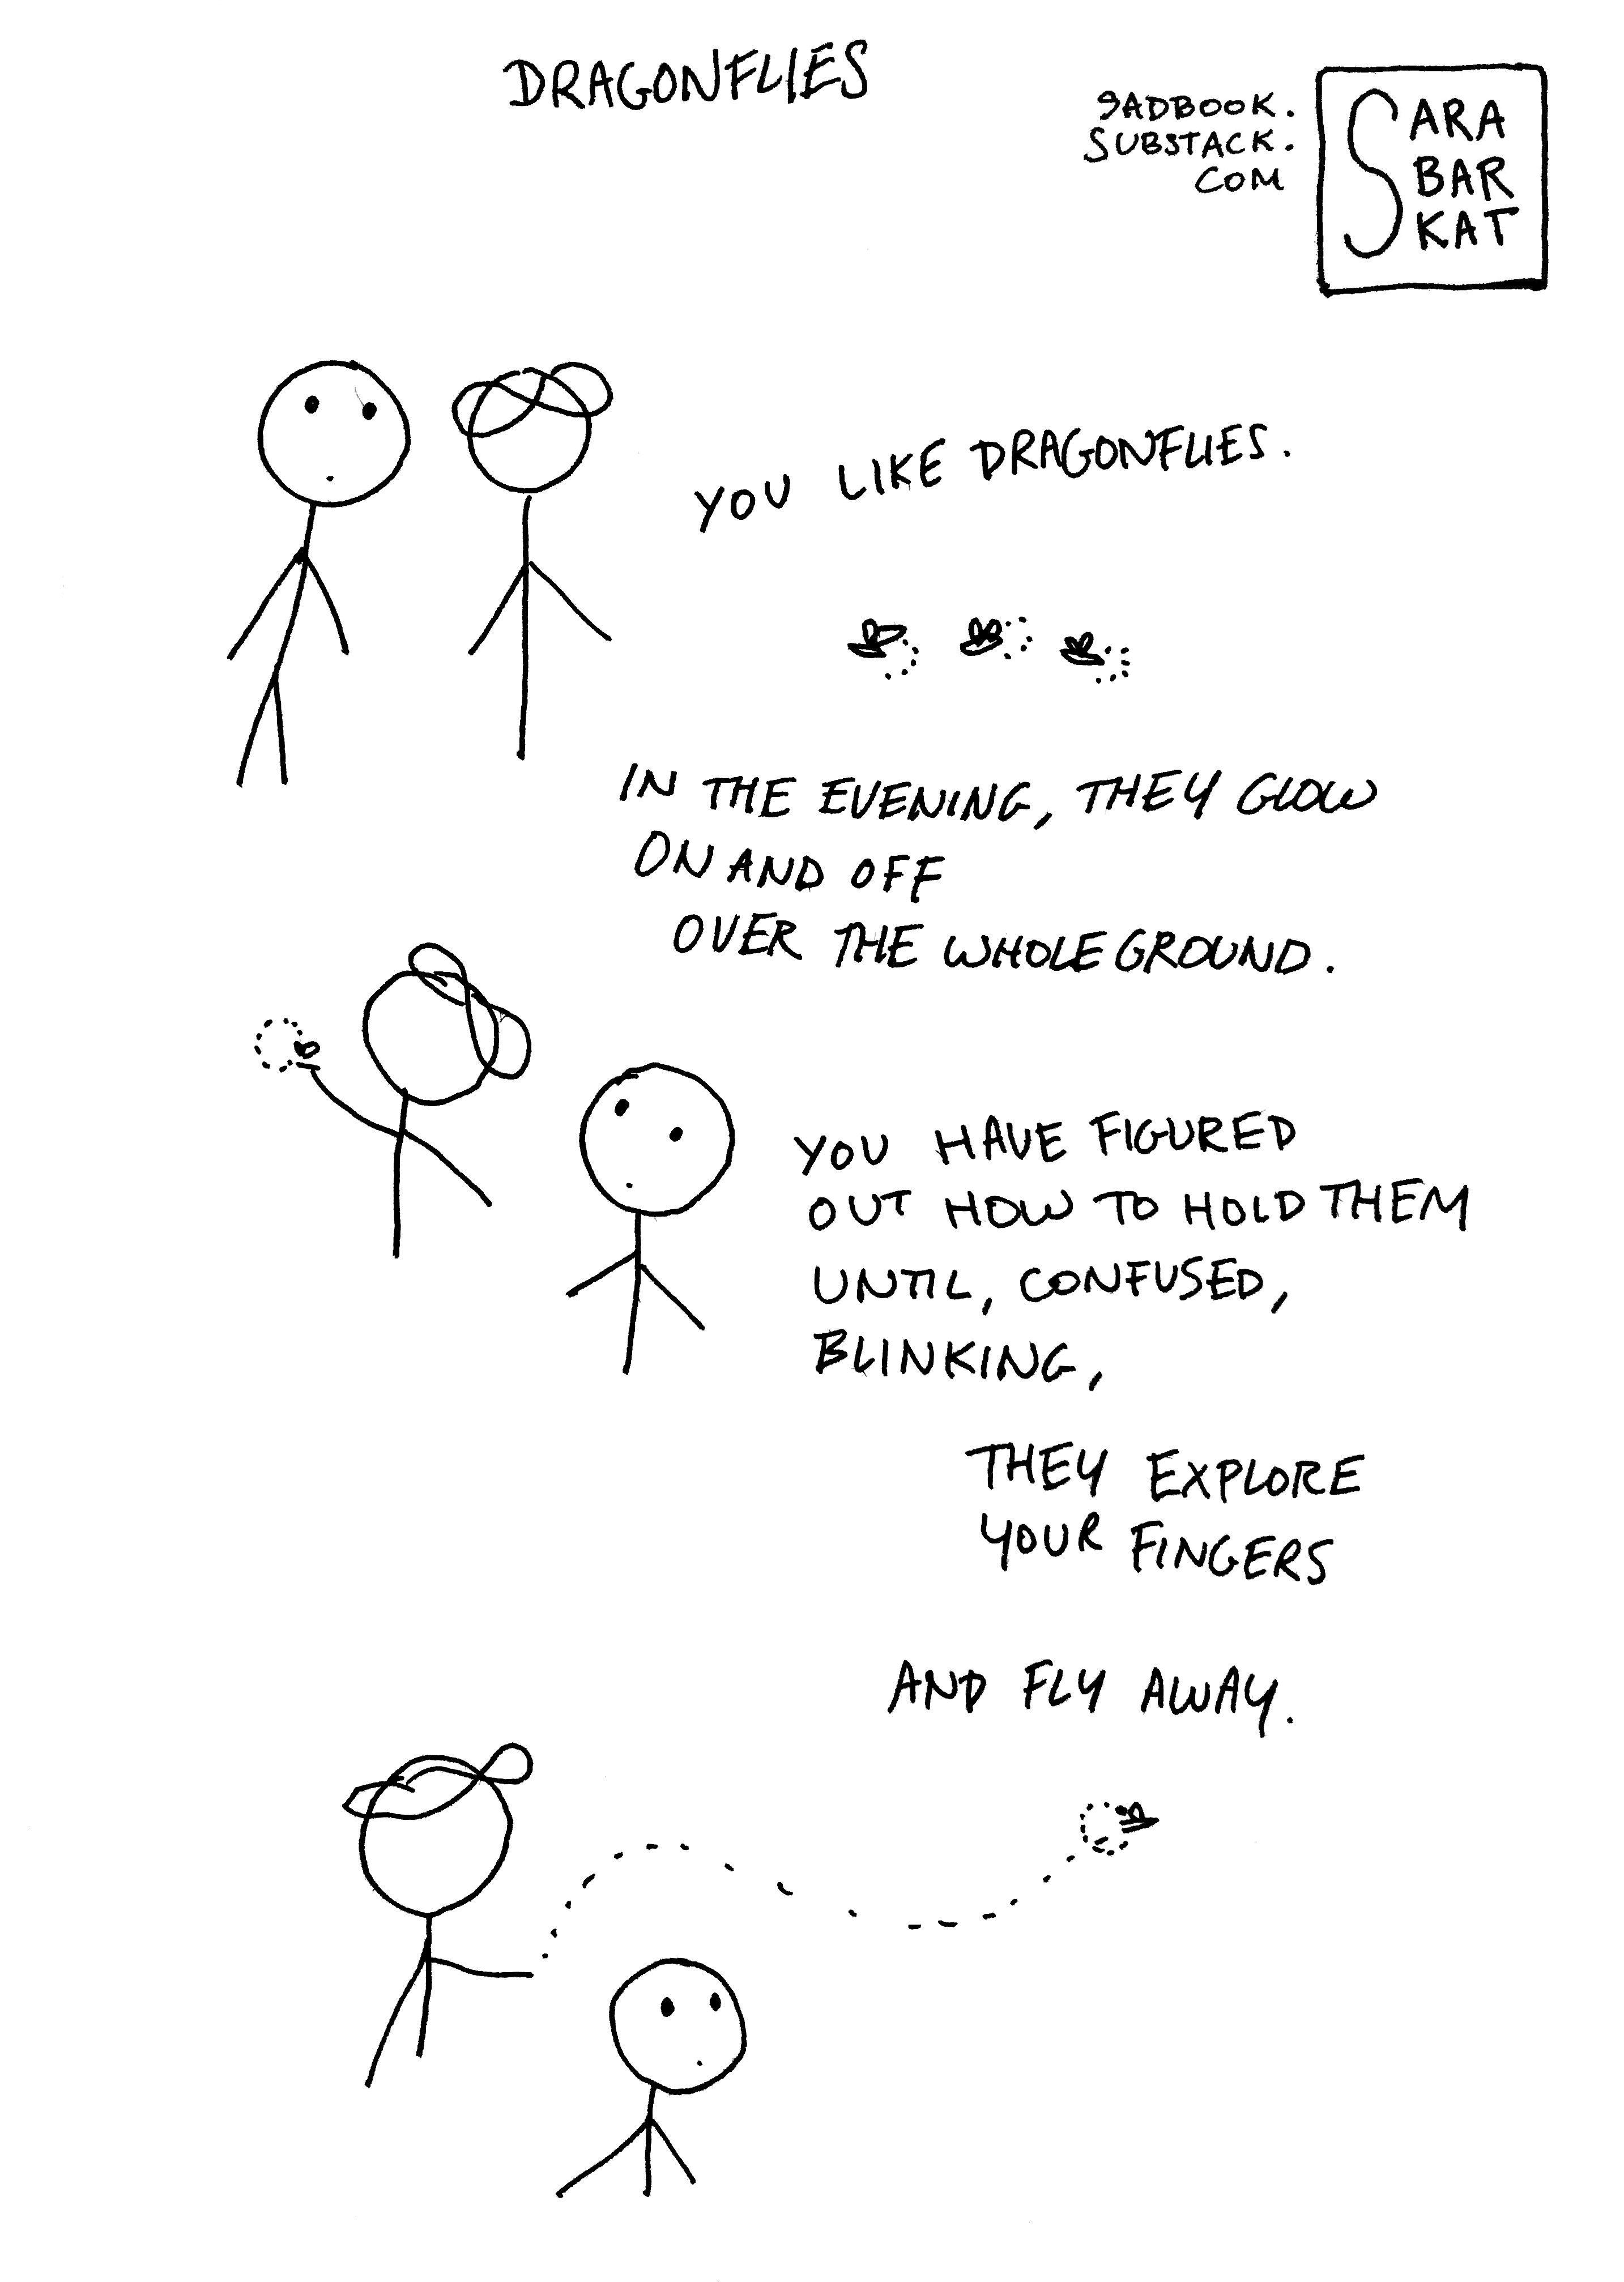 DRAGONFLIES
SADBOOK.
SUBSTACK.
COM
SARA
BAR
KAT
YOU LIKE DRAGONFLIES.
IN THE EVENING, THEY GLOW
ON AND OFF
OVER THE WHOLE GROUND.
YOU HAVE FIGURED
OUT HOW TO HOLD THEM
UNTIL, CONFUSED,
BLINKING,
THEY EXPLORE
YOUR FINGERS
AND FLY AWAY.